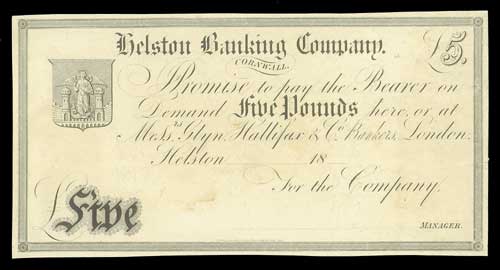 Helston Banking Company.
£5.
CORNWALL.
I Promise to pay the Bearer on
Demand Five Pounds here, or at
Messrs Glyn, Hallifax & Co Bankers, London.
Helston 18
For the Company,
£Five
MANAGER.